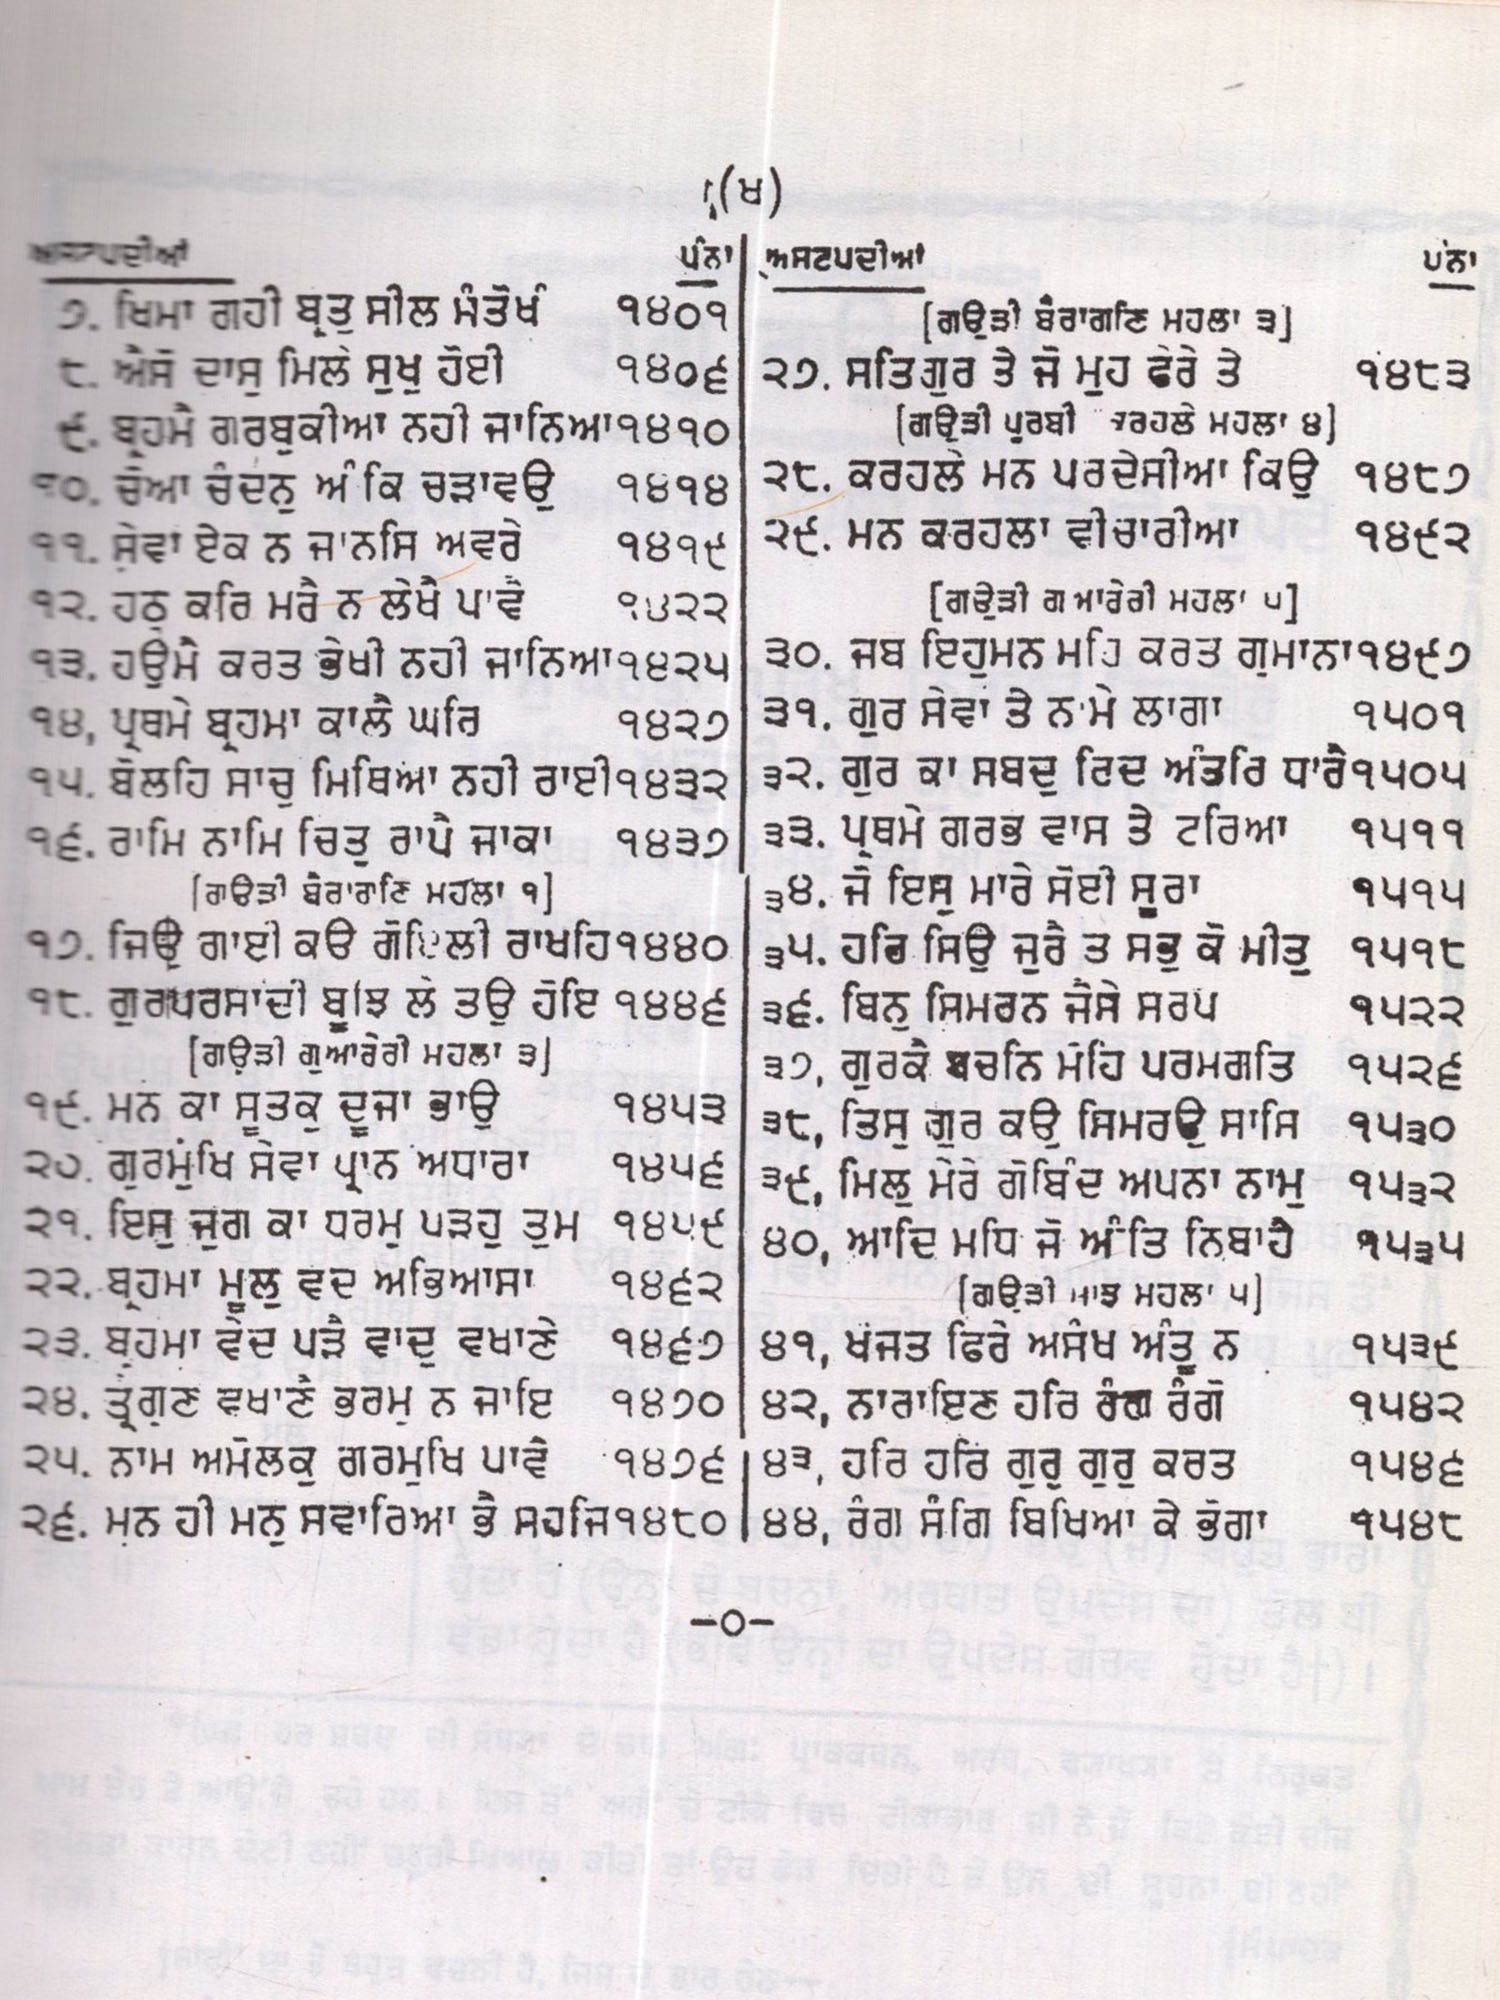 (ਖ)
ਅਸਟਪਦੀਆਂ ਪੰਨਾ
੭. ਖਿਮਾ ਗਹੀ ਬ੍ਰਤੁ ਸੀਲ ਸੰਤੋਖੰ ੧੪੦੧
੮. ਐਸੋ ਦਾਸੁ ਮਿਲੇ ਸੁਖੁ ਹੋਈ ੧੪੦੬
੯. ਬ੍ਰਹਮੈ ਗਰਬੁਕੀਆ ਨਹੀ ਜਾਨਿਆ ੧੪੧੦
੧੦. ਚੋਆ ਚੰਦਨੁ ਅੰਕਿ ਚੜਾਵਉ ੧੪੧੪
੧੧. ਸੇਵਾ ਏਕ ਨ ਜਾਨਸਿ ਅਵਰੇ ੧੪੧੯
੧੨. ਹਠੁ ਕਰਿ ਮਰੈ ਨ ਲੇਖੈ ਪਾਵੈ ੧੪੨੨
੧੩. ਹਉਮੈ ਕਰਤ ਭੇਖੀ ਨਹੀ ਜਾਨਿਆ ੧੪੨੫
੧੪, ਪ੍ਰਥਮੇ ਬ੍ਰਹਮਾ ਕਾਲੈ ਘਰਿ ੧੪੨੭
੧੫. ਬੋਲਹਿ ਸਾਚੁ ਮਿਥਿਆ ਨਹੀ ਰਾਈ ੧੪੩੨
੧੬. ਰਾਮਿ ਨਾਮਿ ਚਿਤੁ ਰਾਪੈ ਜਾਕਾ ੧੪੩੭
[ਗਉੜੀ ਬੈਰਾਗਣਿ ਮਹਲਾ ੧]
੧੭. ਜਿਉ ਗਾਈ ਕਉ ਗੋਇਲੀ ਰਾਖਹਿ ੧੪੪੦
੧੮. ਗੁਰਪਰਸਾਦੀ ਬੂਝਿ ਲੇ ਤਉ ਹੋਇ ੧੪੪੬
[ਗਉੜੀ ਗੁਆਰੇਰੀ ਮਹਲਾ ੩]
੧੯. ਮਨ ਕਾ ਸੂਤਕੁ ਦੂਜਾ ਭਾਉ ੧੪੫੩
੨੦. ਗੁਰਮੁਖਿ ਸੇਵਾ ਪ੍ਰਾਨ ਅਧਾਰਾ ੧੪੫੬
੨੧. ਇਸੁ ਜੁਗ ਕਾ ਧਰਮੁ ਪੜਹੁ ਤੁਮ ੧੪੫੯
੨੨. ਬ੍ਰਹਮਾ ਮੂਲੁ ਵਦ ਅਭਿਆਸਾ ੧੪੬੨
੨੩. ਬ੍ਰਹਮਾ ਵੇਦ ਪੜੈ ਵਾਦੁ ਵਖਾਣੇ ੧੪੬੭
੨੪. ਤ੍ਰੈਗੁਣ ਵਖਾਣੈ ਭਰਮੁ ਨ ਜਾਇ ੧੪੭੦
੨੫. ਨਾਮ ਅਮੋਲਕੁ ਗਰਮੁਖਿ ਪਾਵੈ ੧੪੭੬
੨੬. ਮਨ ਹੀ ਮਨੁ ਸਵਾਰਿਆ ਭੈ ਸਹਜਿ ੧੪੮੦
ਅਸਟਪਦੀਆਂ ਪੰਨਾ
[ਗਉੜੀ ਬੈਰਾਗਣਿ ਮਹਲਾ ੩]
੨੭. ਸਤਿਗੁਰ ਤੇ ਜੋ ਮੁਹ ਫੇਰੇ ਤੇ ੧੪੮੩
[ਗਉੜੀ ਪੂਰਬੀ ਕਰਹਲੇ ਮਹਲਾ ੪]
੨੮. ਕਰਹਲੇ ਮਨ ਪਰਦੇਸੀਆ ਕਿਉ ੧੪੮੭
੨੯. ਮਨ ਕਰਹਲਾ ਵੀਚਾਰੀਆ ੧੪੯੨
[ਗਉੜੀ ਗੁਆਰੇਰੀ ਮਹਲਾ ੫]
੩੦. ਜਬ ਇਹੁਮਨ ਮਹਿ ਕਰਤ ਗੁਮਾਨਾ ੧੪੯੭
੩੧. ਗੁਰ ਸੇਵਾ ਤੇ ਨਾਮੇ ਲਾਗਾ ੧੫੦੧
੩੨. ਗੁਰ ਕਾ ਸਬਦੁ ਰਿਦ ਅੰਤਰਿ ਧਾਰੈ ੧੫੦੫
੩੩. ਪ੍ਰਥਮੇ ਗਰਭ ਵਾਸ ਤੇ ਟਰਿਆ ੧੫੧੧
੩੪. ਜੋ ਇਸੁ ਮਾਰੇ ਸੋਈ ਸੂਰਾ ੧੫੧੫
੩੫. ਹਰਿ ਸਿਉ ਜੁਰੈ ਤ ਸਭੁ ਕੋ ਮੀਤੁ ੧੫੧੮
੩੬. ਬਿਨੁ ਸਿਮਰਨ ਜੈਸੇ ਸਰਪ ੧੫੨੨
੩੭, ਗੁਰਕੈ ਬਚਨਿ ਮੋਹਿ ਪਰਮਗਤਿ ੧੫੨੬
੩੮, ਤਿਸੁ ਗੁਰ ਕਉ ਸਿਮਰਉ ਸਾਸਿ ੧੫੩੦
੩੯, ਮਿਲੁ ਮੇਰੇ ਗੋਬਿੰਦ ਅਪਨਾ ਨਾਮੁ ੧੫੩੨
੪੦, ਆਦਿ ਮਧਿ ਜੋ ਅੰਤਿ ਨਿਬਾਹੈ ੧੫੩੫
[ਗਉੜੀ ਮਾਝ ਮਹਲਾ ੫]
੪੧, ਖੋਜਤ ਫਿਰੇ ਅਸੰਖ ਅੰਤੂ ਨ ੧੫੩੯
੪੨, ਨਾਰਾਇਣ ਹਰਿ ਰੰਗ ਰੰਗੋ ੧੫੪੨
੪੩, ਹਰਿ ਹਰਿ ਗੁਰੁ ਗੁਰੁ ਕਰਤ ੧੫੪੬
੪੪, ਰੰਗ ਸੰਗਿ ਬਿਖਿਆ ਕੇ ਭੋਗਾ ੧੫੪੮
–੦–